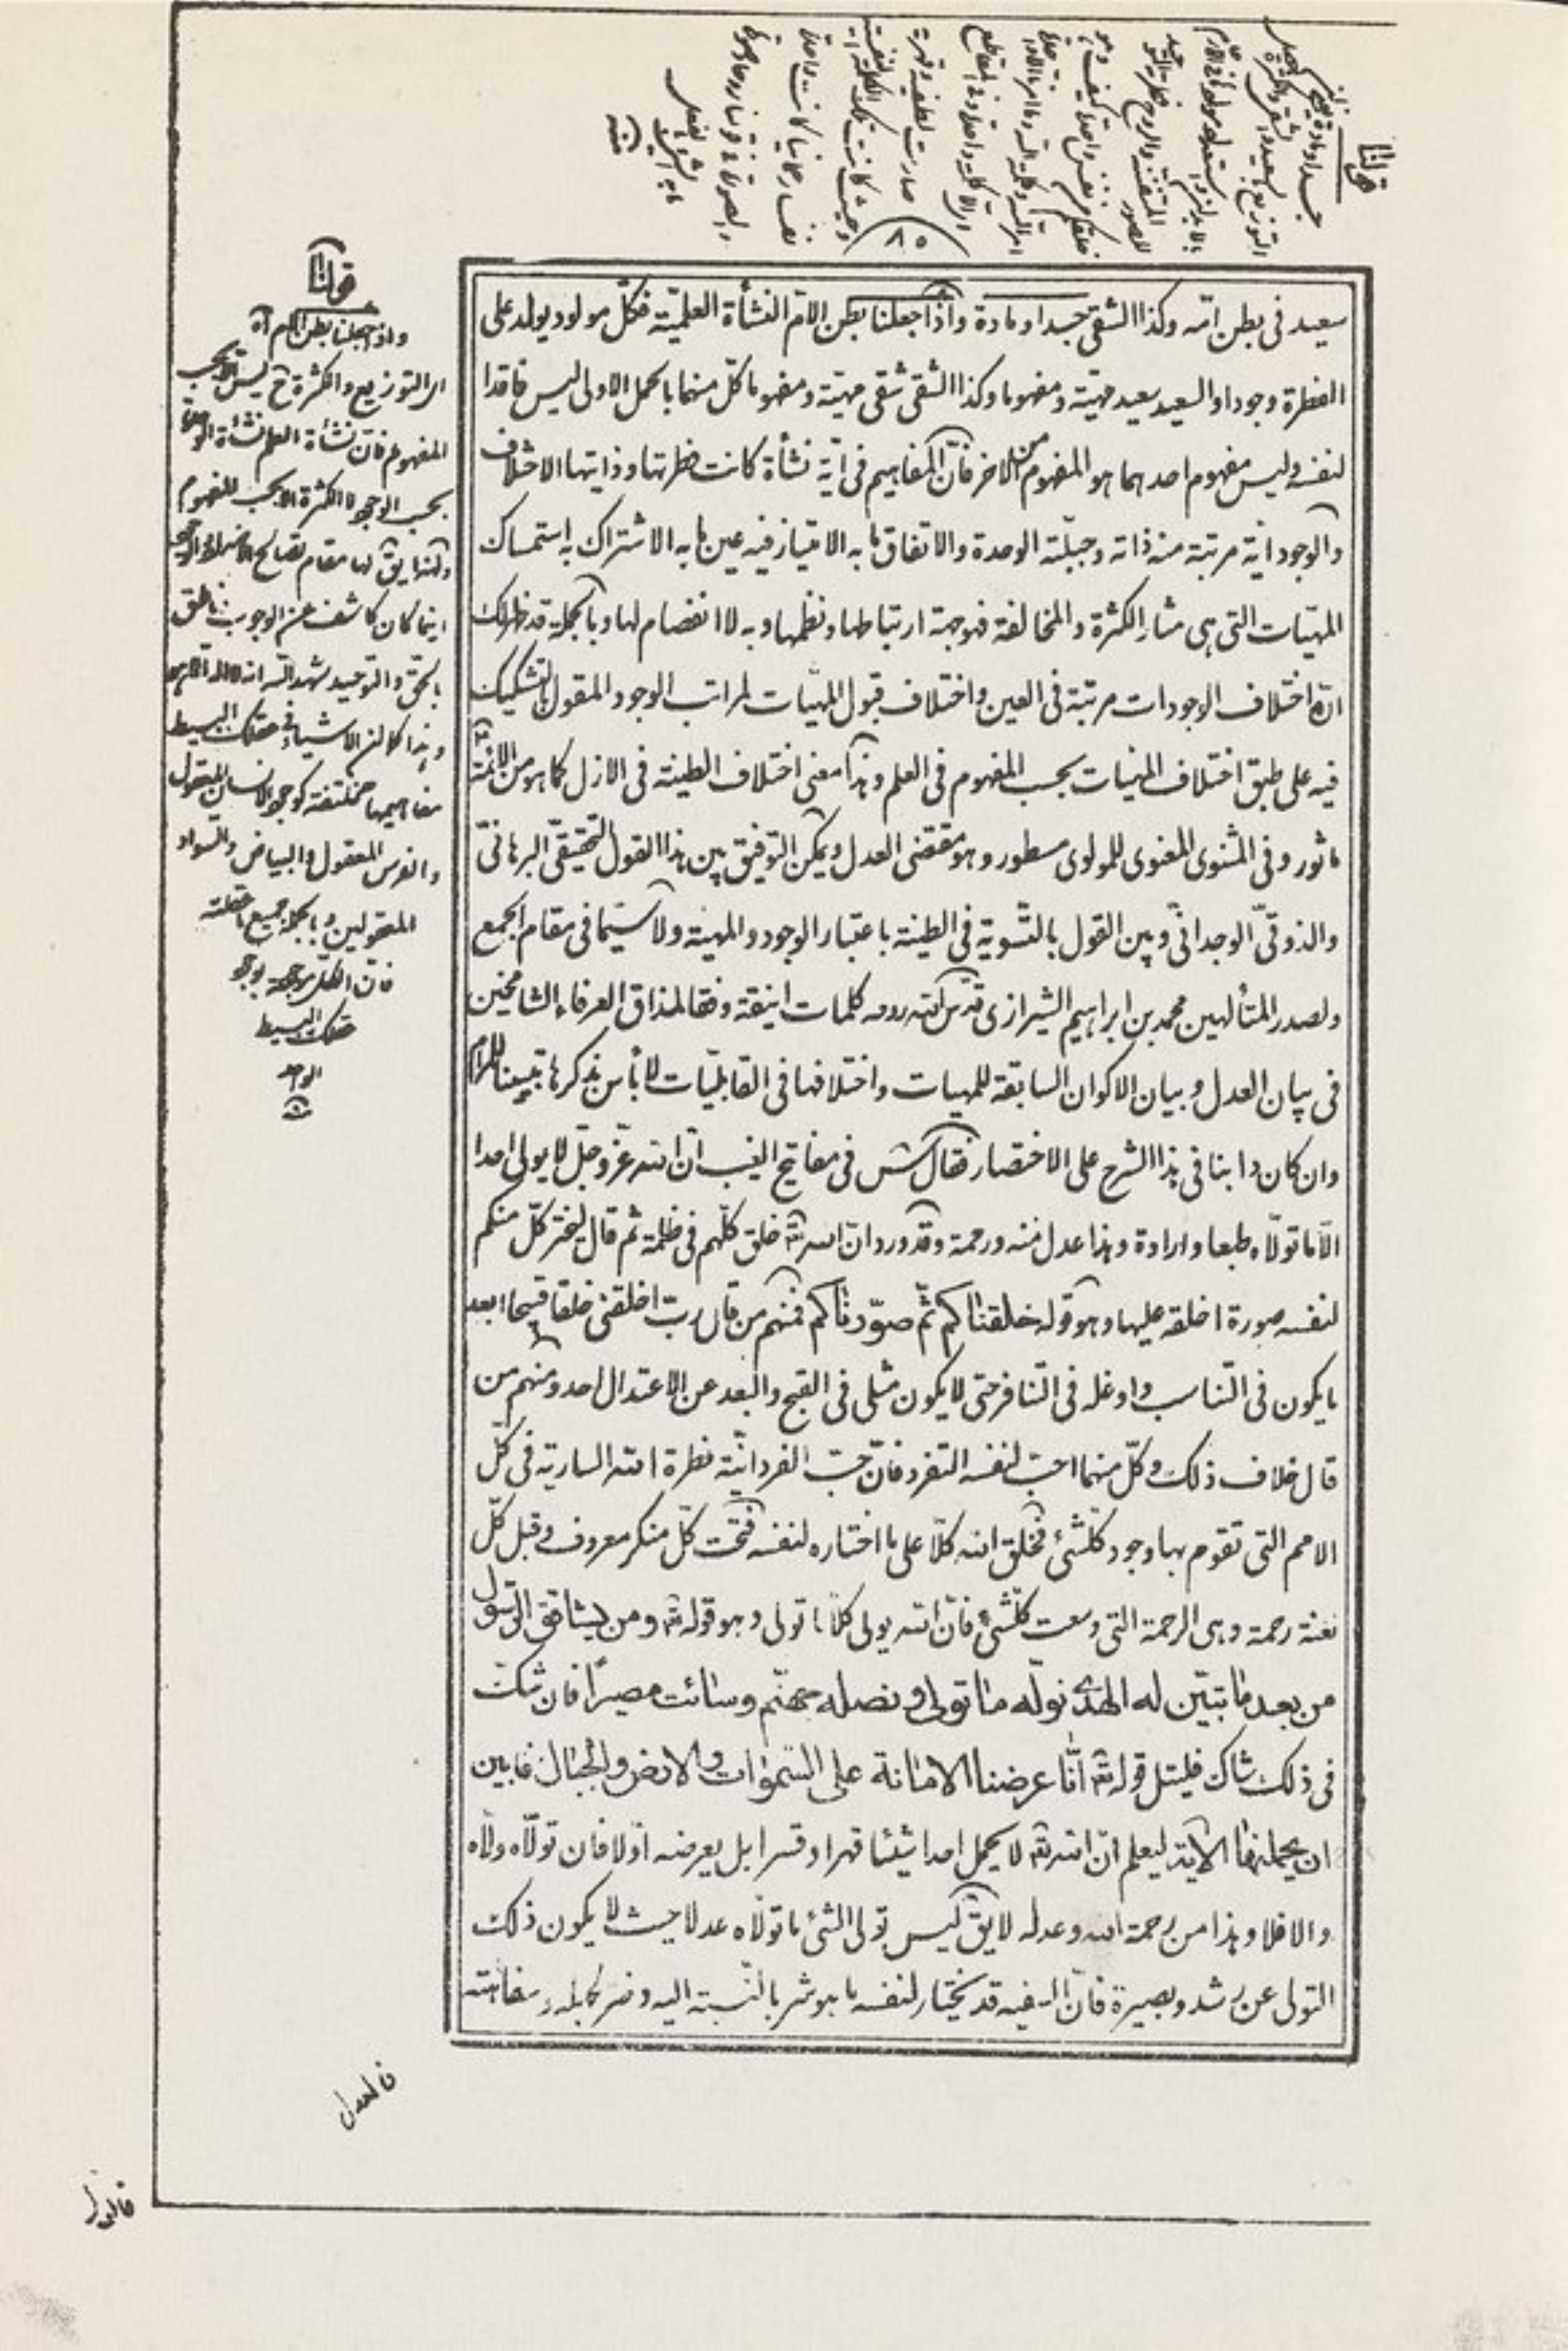 قولنا
جسدا ومادة
٨٥
سعيد فى بطن امّه وكذا الشقى جسدا ومادة واذا جعلنا بطن الامّ النشأة العلميّة فكلّ مولود يولد على
الفطرة وجودا والسعيد سعيد مهيّة ومفهوما وكذا الشقى شقى مهيّة ومفهوما كلّ منهما بالحمل الاولى ليس فاقدا
لنفسه وليس مفهوم احدهما هو المفهوم من الاخر فانّ المفاهيم فى ايّة نشأة كانت فطرتها وذاتيتها الاختلاف
والوجود اية مرتبة منه ذاته وجبلّته الوحدة والاتفاق ما به الامتياز فيه عين ما به الاشتراك به استمساك
المهيّات التى هى مثار الكثرة والمخالفة فهو جهة ارتباطها ونظمها وبه لا انفصام لها وبالجملة قد ظهر لك
انّ اختلاف الوجودات مرتبة فى العين واختلاف قبول المهيّات لمراتب الوجود المقول بالتشكيك
فيه على طبق اختلاف المهيات بحسب المفهوم فى العلم وهذا معنى اختلاف الطينة فى الازل كما هو من الائمّة
ماثور وفى المثنوى المعنوى للمولوى مسطور وهو مقتضى العدل ويمكن التوفيق بين هذا القول التحقيقّى البرهانّى
والذوقّى الوجدانّى وبين القول بالتّسوية فى الطينة باعتبار الوجود والمهية ولا سيّما فى مقام الجمع
ولصدر المتألهين محمد بن ابراهيم الشيرازى قدّس الله روحه كلمات انيقة وفقا لمذاق العرفاء الشامخين
فى بيان العدل وبيان الاكوان السابقة للمهيات واختلافها فى القابليّات لا بأس بذكرها تبيينا للمرام
وان كان دابنا فى هذا الشرح على الاختصار فقال س س فى مفاتيح الغيب انّ الله عزّ وجلّ لا يولى احدا
الّا ما تولّاه طبعا وارادة وهذا عدل منه ورحمة وقد ورد انّ الله تعّ خلق كلّهم فى ظلمة ثم قال ليختر كلّ منكم
لنفسه صورة اخلقه عليها وهو قوله خلقناكم ثمّ صوّرناكم فمنهم من قال ربّ اخلقنى خلقا قبيحا ابعد
ما يكون فى التّناسب واوغله فى التّنافر حتى لا يكون مثلى فى القبح والبعد عن الاعتدال احد ومنهم من
قال خلاف ذلك وكلّ منهما احبّ لنفسه التفرد فانّ حبّ الفردانيّة فطرة الله السارية فى كلّ
الامم التى تقوم بها وجود كلّشئ فخلق الله كلّا على ما اختاره لنفسه فتحت كلّ منكر معروف وقبل كلّ
لعنة رحمة وهى الرحمة التى وسعت كلّشئ فانّ الله يولى كلّا ما تولى وهو قوله تعّ ومن يشاقق الرّسول
من بعد ما تبيّن له الهدى نولّه ما تولى ونصله جهنّم وسائت مصيرًا فان شكّ
فى ذلك شاك فليتل قوله تعّ انّا عرضنا الامانة على السّموات والارض والجبال فابين
ان يحملنها الآية ليعلم انّ الله تعّ لا يحمل احدا شيئا قهرا وقسرا بل يعرضه اوّلا فان تولّاه ولّاه
والا فلا وهذا من رحمة الله وعدله لا يقّ ليس تولى الشئ ما تولّاه عدلا حيث لا يكون ذلك
التولى عن رشد وبصيرة فانّ السفيه قد يختار لنفسه ما هو شر بالنّسبة اليه وضر لجهله وسفاهته
قولنا
واذا جعلنا بطن الام آه
امر التوزيع والكثرة ح ليس الا بحسب
المفهوم فانّ نشأة العلم نشأة الوحدة
بحسب الوجود لا الكثرة الا بحسب المفهوم
ولهذا يقّ لها مقام تصالح الاضداد والوجود
اينما كان كاشف عن الوجوب ناطق
بالحق والتوحيد شهد الله انه لا اله الا هو
وهذا كما ان الاشياء فى عقلك البسيط
مفاهيمها مختلفة كوجود الانسان المعقول
والفرس المعقول والبياض والسواد
المعقولين وبالجملة جميع ما عقلته
فان الكل موجودة بوجود
عقلك البسيط
الواحد
فالعدل
فالعدل